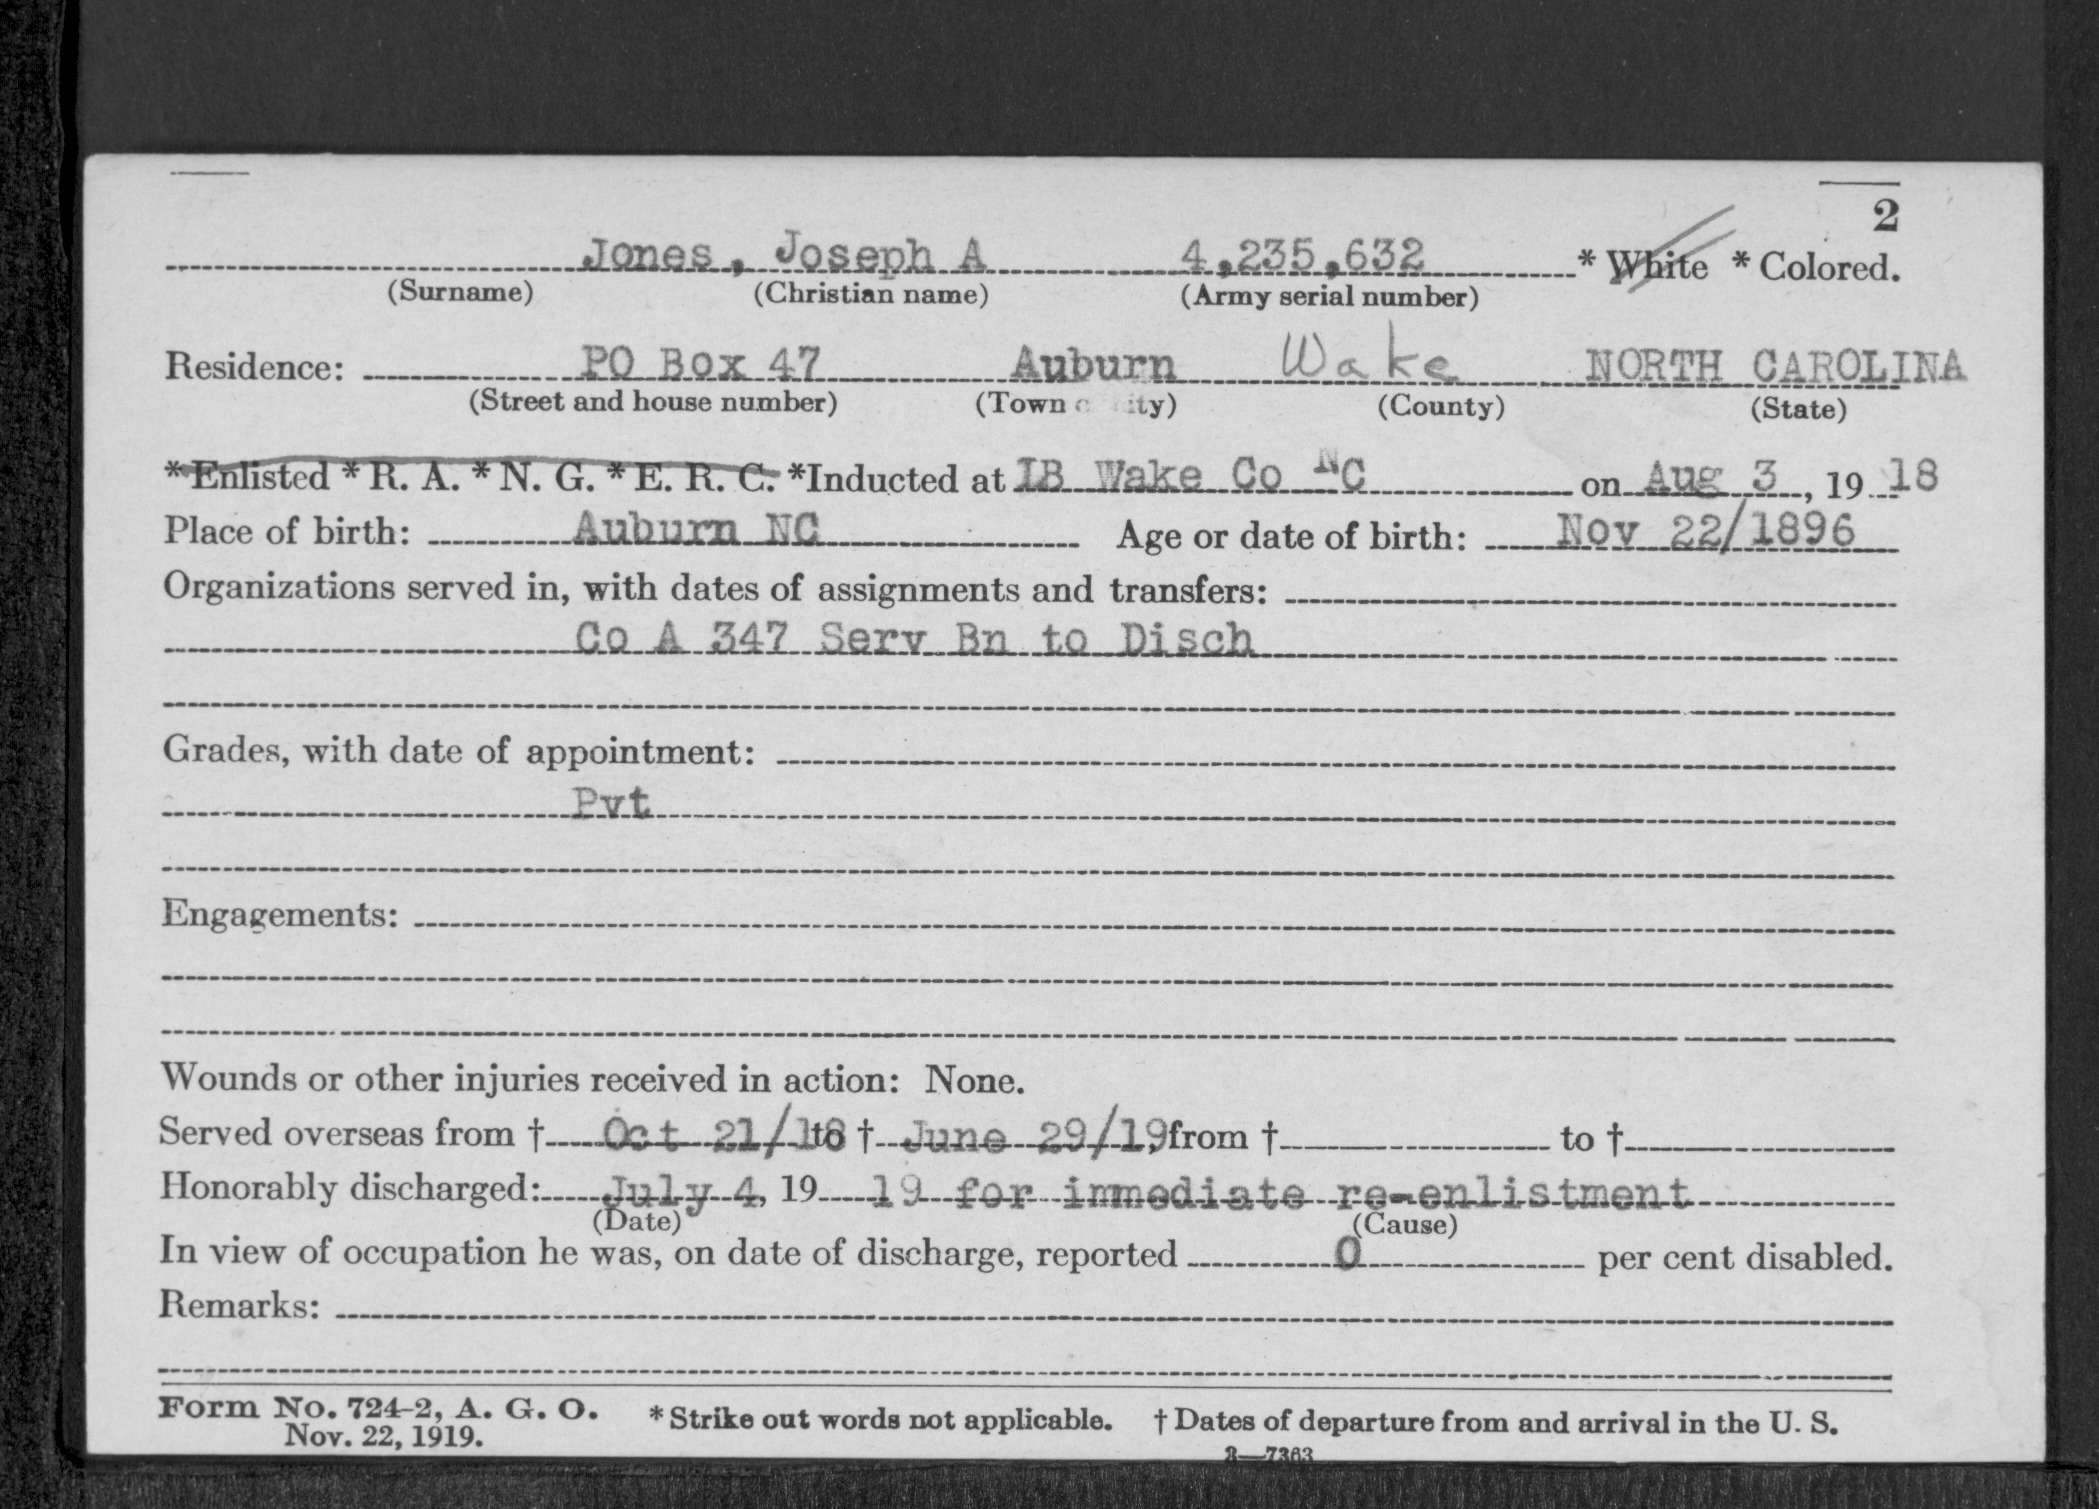 2
Jones, Joseph A 4,235,632 * White * Colored.
(Surname) (Christian name) (Army serial number)
Residence: PO Box 47 Auburn Wake NORTH CAROLINA
(Street and house number) (Town ity) (County) (State)
*Enlisted *R. A. *N. G. *E. R. C. *Inducted at LB Wake Co NC on Aug 3, 19 18
Place of birth: Auburn NC Age or date of birth: Nov 22/1896
Organizations served in, with dates of assignments and transfers:
Co A 347 Serv Bn to Disch
Grades, with date of appointment:
Pvt
Engagements:
Wounds or other injuries received in action: None.
Served overseas from † Oct 21/18 to † June 29/19, from † to †
Honorably discharged: July 4, 19 19 for immediate re-enlistment
(Date) (Cause)
In view of occupation he was, on date of discharge, reported 0 per cent disabled.
Remarks:
Form No. 724-2, A. G. O. *Strike out words not applicable. † Dates of departure from and arrival in the U. S.
Nov. 22, 1919.
3—7363